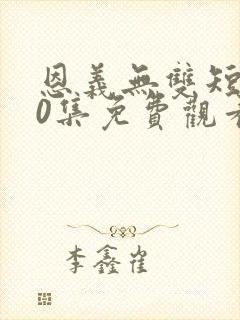 恩義無雙短
0集免費觀看
李鑫崔